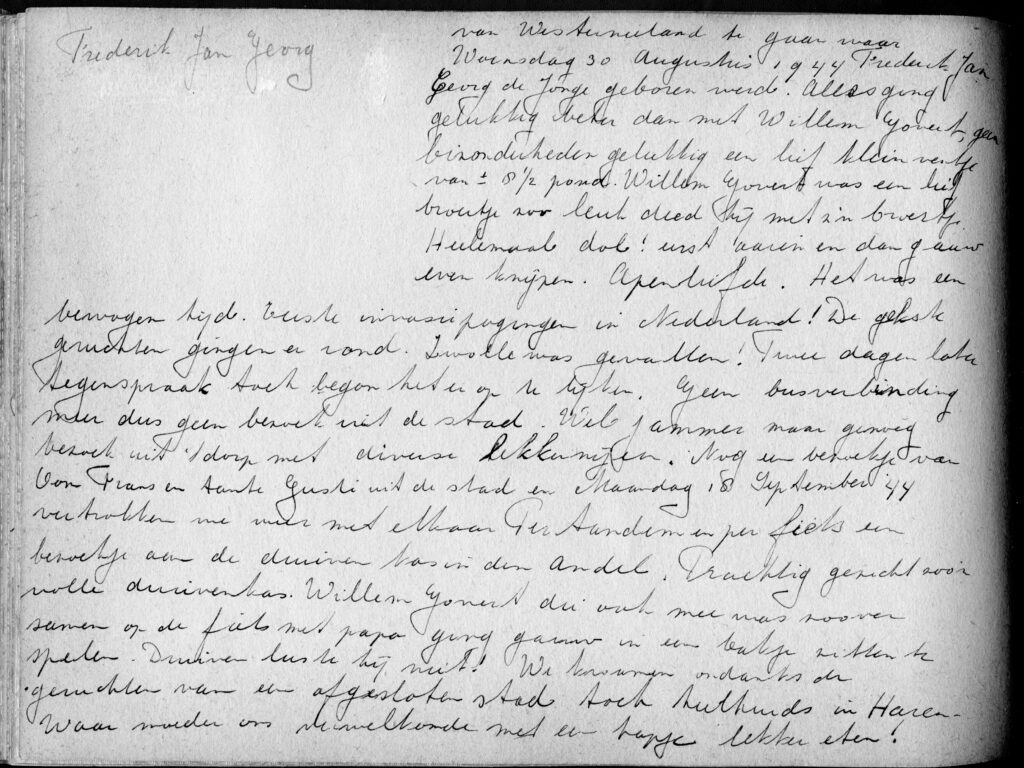 Frederik Jan Georg
van Westernieland te gaan waar
Woensdag 30 Augustus 1944 Frederik Jan
Georg de Jonge geboren werd. Alles ging
gelukkig beter dan met Willem Govert, geen
bizonderheden gelukkig een lief klein ventje
van ± 8 1/2 pond. Willem Govert was een lief
broertje zoo leuk deed hij met z'n broertje.
Heelemaal dol! eerst aaien en dan gauw
even knijpen. Apenliefde. Het was een
bewogen tijd. Eerste invasiepogingen in Nederland! De gekste
geruchten gingen er rond. Zwolle was gevallen! Twee dagen later
tegenspraak toch begon het er op te lijken. Geen busverbinding
meer dus geen bezoek uit de stad. Wel jammer maar genoeg
bezoek uit 't dorp met diverse lekkernijen. Nog een bezoekje van
Oom Frans en tante Gusti uit de stad en Maandag 18 September '44
vertrokken we weer met elkaar Per tandem en per fiets een
bezoekje aan de druiven kas in den Andel. Prachtig gezicht zoo'n
volle druivenkas. Willem Govert die ook mee was
samen op de fiets met papa ging gauw in een bakje zitten te
spelen. Druiven luste hij niet! We kwamen ondanks de
geruchten van een afgesloten stad toch heelhuids in Haren.
Waar moeder ons verwelkomde met een hapje lekker eten!